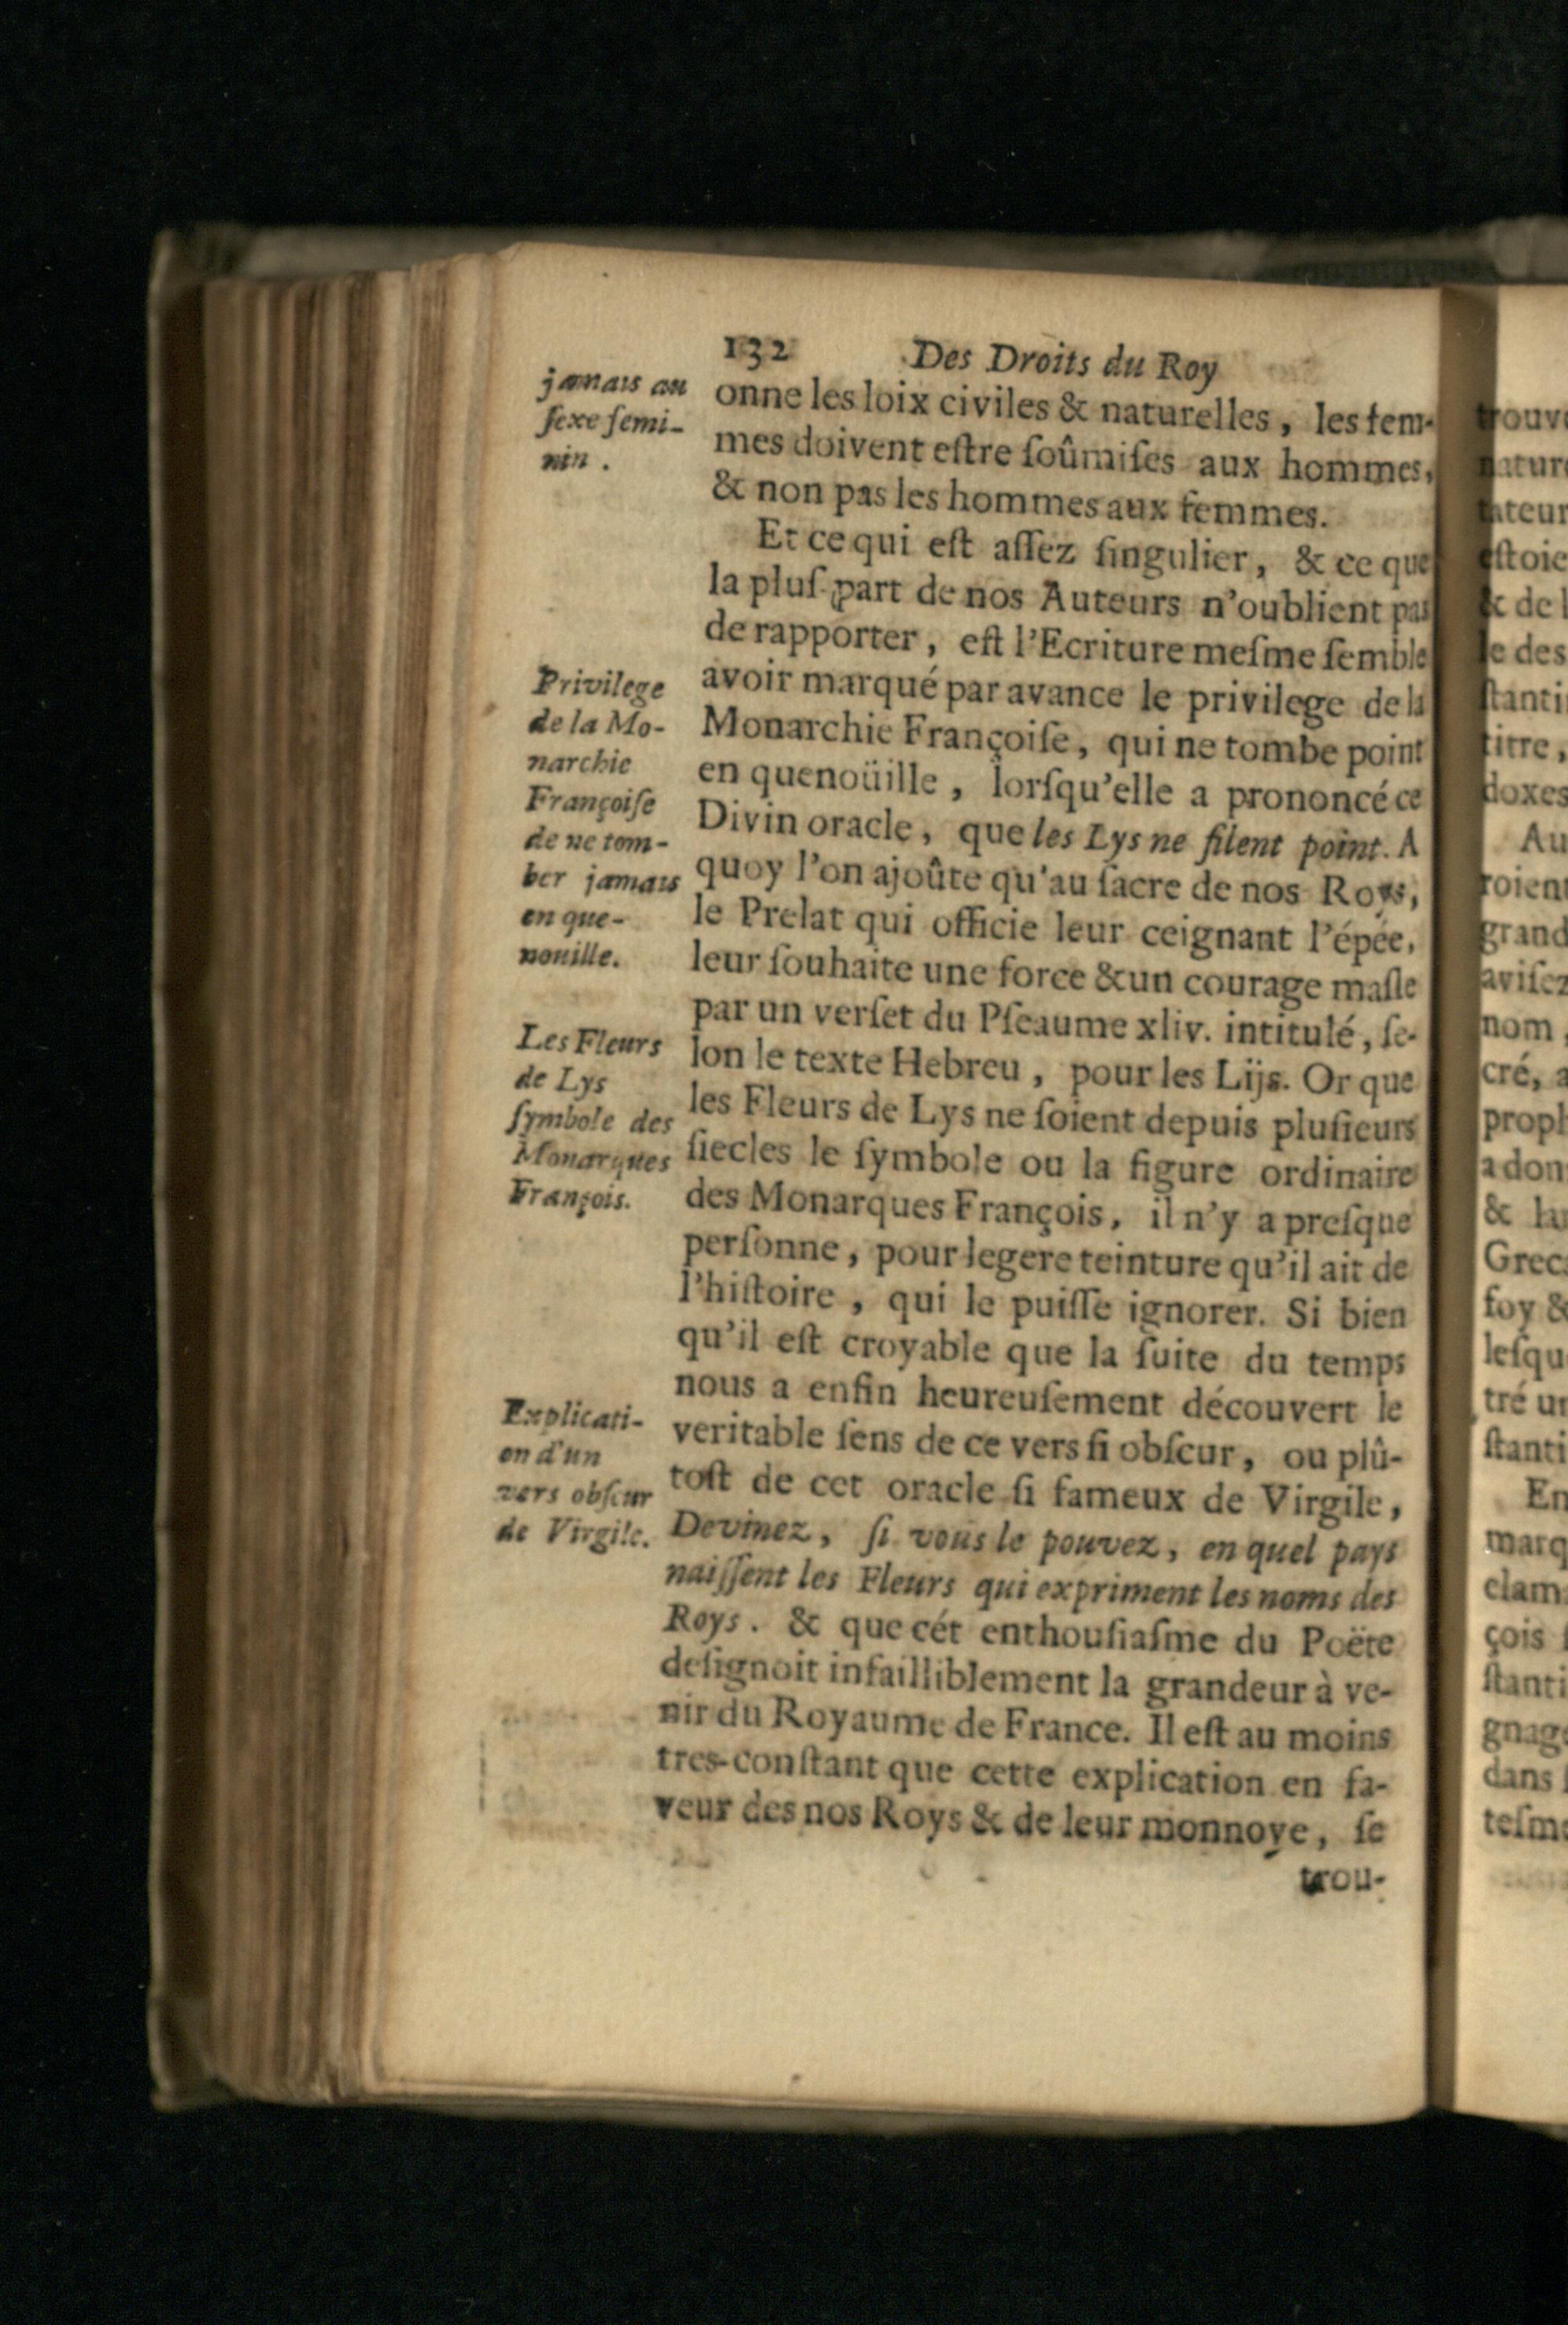 132 Des Droits du Roy
jamais au
ſexe femi-
nin.
onne les loix civiles & naturelles, les fem-
mes doivent eſtre ſoûmiſes aux hommes,
& non pas les hommes aux femmes.
Et ce qui eſt aſſez ſingulier, & ce que
la pluſ part de nos Auteurs n'oublient pas
de rapporter, eſt l'Ecriture meſme ſemble
avoir marqué par avance le privilege de la
Monarchie Françoiſe, qui ne tombe point
en quenoüille, lorſqu'elle a prononcé ce
Divin oracle, que les Lys ne filent point. A
quoy l'on ajoûte qu'au ſacre de nos Roys,
le Prelat qui officie leur ceignant l'épée,
leur ſouhaite une force & un courage maſle
par un verſet du Pſeaume xliv. intitulé, ſe-
lon le texte Hebreu, pour les Lijs. Or que
les Fleurs de Lys ne ſoient depuis pluſieurs
ſiecles le ſymbole ou la figure ordinaire
des Monarques François, il n'y a preſque
perſonne, pour legere teinture qu'il ait de
l'hiſtoire, qui le puiſſe ignorer. Si bien
qu'il eſt croyable que la ſuite du temps
nous a enfin heureuſement découvert le
veritable ſens de ce vers ſi obſcur, ou plû-
toſt de cet oracle ſi fameux de Virgile,
Devinez, ſi vous le pouvez, en quel pays
naiſſent les Fleurs qui expriment les noms des
Roys. & que cét enthouſiaſme du Poëte
deſignoit infailliblement la grandeur à ve-
nir du Royaume de France. Il eſt au moins
tres-conſtant que cette explication en fa-
veur des nos Roys & de leur monnoye, ſe
trou-
Privilege
de la Mo-
narchie
Françoiſe
de ne tom-
ber jamais
en que-
nouille.
Les Fleurs
de Lys
ſymbole des
Monarques
François.
Explicati-
on d'un
vers obſcur
de Virgile.
trouve
nature
eſtoie
& de l
le des
ſtanti
titre,
doxes
Au
roient
grand
aviſez
nom,
cré, a
proph
a don
& lu
Grec
foy &
leſqu
tré un
ſtanti
En
marq
clam
çois
ſtanti
gnag
dans
teſme